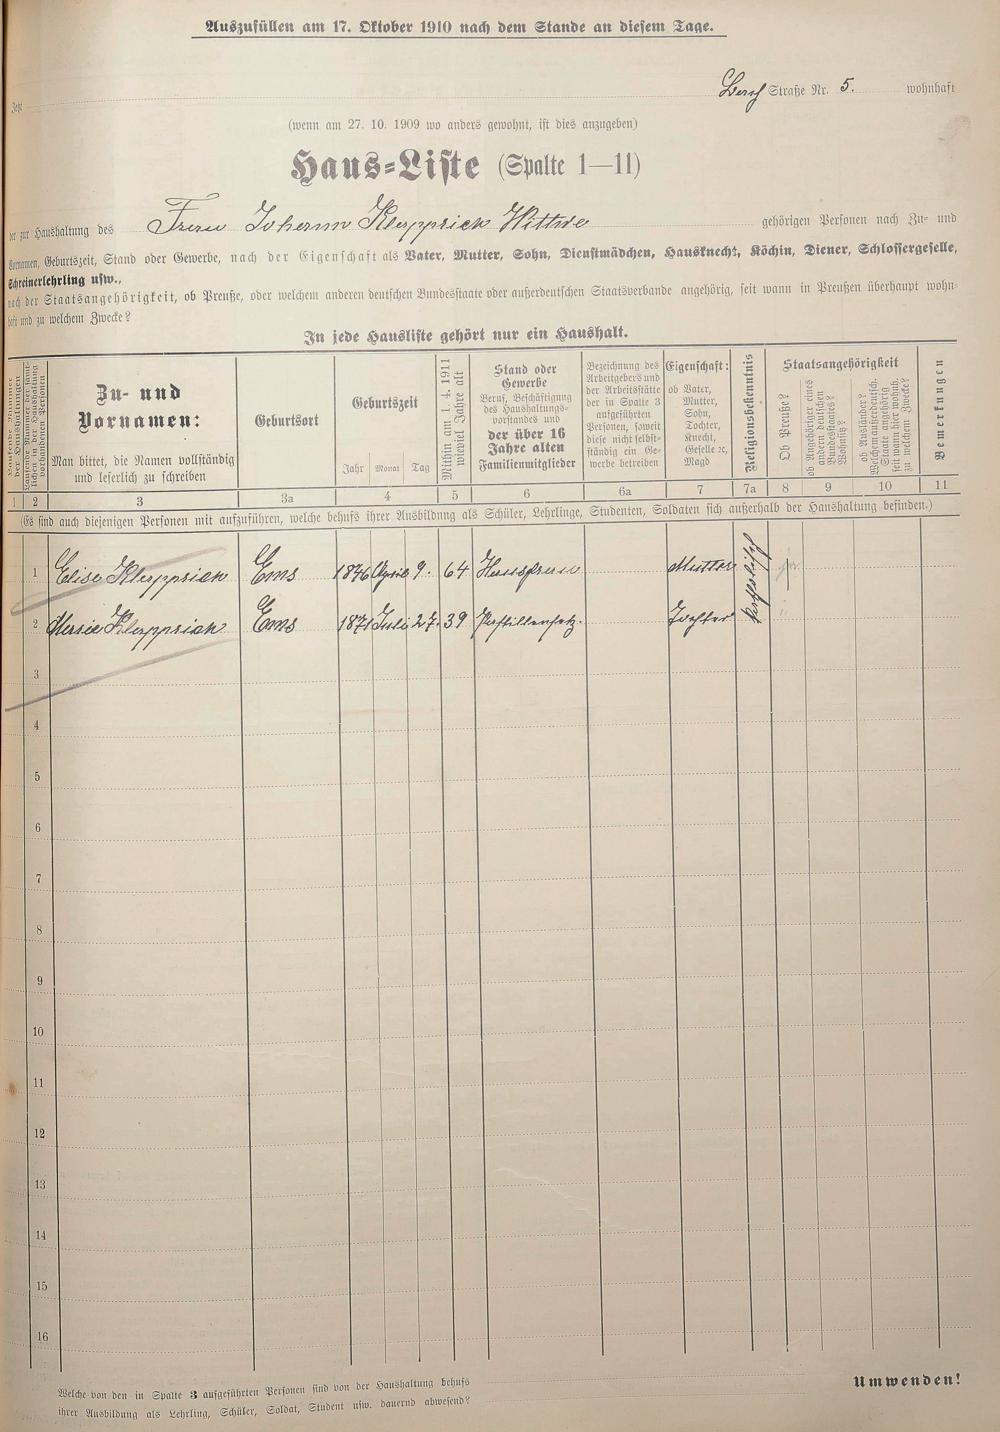 Auszufüllen am 17. Oktober 1910 nach dem Stande an diesem Tage.
Jetzt Straße Nr. 5. wohnhaft
(wenn am 27. 10. 1909 wo anders gewohnt, ist dies anzugeben)
Haus-Liste (Spalte 1—11)
der zur Haushaltung des Frau Johann Klöpprich Wittwe gehörigen Personen nach Zu- und
Vornamen, Geburtszeit, Stand oder Gewerbe, nach der Eigenschaft als Vater, Mutter, Sohn, Dienstmädchen, Hausknecht, Köchin, Diener, Schlossergeselle,
Schreinerlehrling usw.,
nach der Staatsangehörigkeit, ob Preuße, oder welchem anderen deutschen Bundesstaate oder außerdeutschen Staatsverbande angehörig, seit wann in Preußen überhaupt wohn-
haft und zu welchem Zwecke?
In jede Hausliste gehört nur ein Haushalt.
Laufende Nummer der Haushaltungen
Laufende Nummer der sämt-
lichen in der Haushaltung
vorhandenen Personen
Zu- und
Vornamen:
Man bittet, die Namen vollständig
und leserlich zu schreiben
Geburtsort
Geburtszeit
Jahr Monat Tag
Mithin am 1. 4. 1911
wieviel Jahre alt
Stand oder
Gewerbe
Beruf, Beschäftigung
des Haushaltungs-
vorstandes und
der über 16
Jahre alten
Familienmitglieder
Bezeichnung des
Arbeitgebers und
der Arbeitsstätte
der in Spalte 3
aufgeführten
Personen, soweit
diese nicht selbst-
ständig ein Ge-
werbe betreiben
Eigenschaft:
ob Vater,
Mutter,
Sohn,
Tochter,
Knecht,
Geselle ꝛc,
Magd
Religionsbekenntnis
Staatsangehörigkeit
Ob Preuße?
ob Angehöriger eines
anderen deutschen
Bundesstaates?
Wohnsitz?
ob Ausländer?
Welchem außerdeutsch.
Staate angehörig
seit wann hier wohnh.
zu welchem Zwecke?
Bemerkungen
1 2 3 3a 4 5 6 6a 7 7a 8 9 10 11
(Es sind auch diejenigen Personen mit aufzuführen, welche behufs ihrer Ausbildung als Schüler, Lehrlinge, Studenten, Soldaten sich außerhalb der Haushaltung befinden.)
1 Elise Klöpprich Ems 1846 April 9. 64 Hausfrau Mutter katholisch ja
2 Klöpprich Ems 1871 Juli 27. 39 Tochter "
3
4
5
6
7
8
9
10
11
12
13
14
15
16
Welche von den in Spalte 3 aufgeführten Personen sind von der Haushaltung behufs
ihrer Ausbildung als Lehrling, Schüler, Soldat, Student usw. dauernd abwesend?
Umwenden!